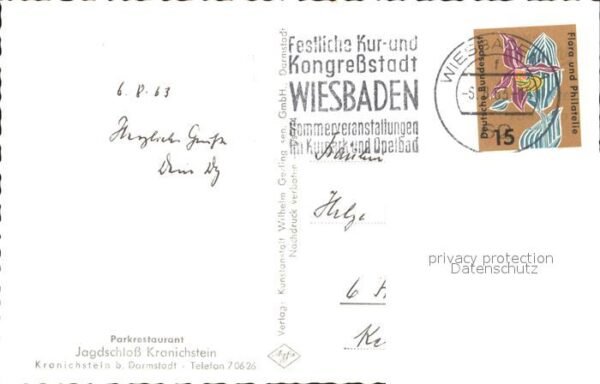 6.8.63
Herzliche Grüße
Dein
Parkrestaurant
Jagdschloß Kranichstein
Kranichstein b. Darmstadt - Telefon 70626
Verlag: Kunstanstalt Wilhelm Gerling sen. GmbH. Darmstadt
Nachdruck verboten
Festliche Kur-und
Kongreßstadt
WIESBADEN
Sommerveranstaltungen
im Kurpark und Opelbad
WIESBADEN
f
Deutsche Bundespost
Flora und Philatelie
15
Helga
6 F
privacy protection
Datenschutz